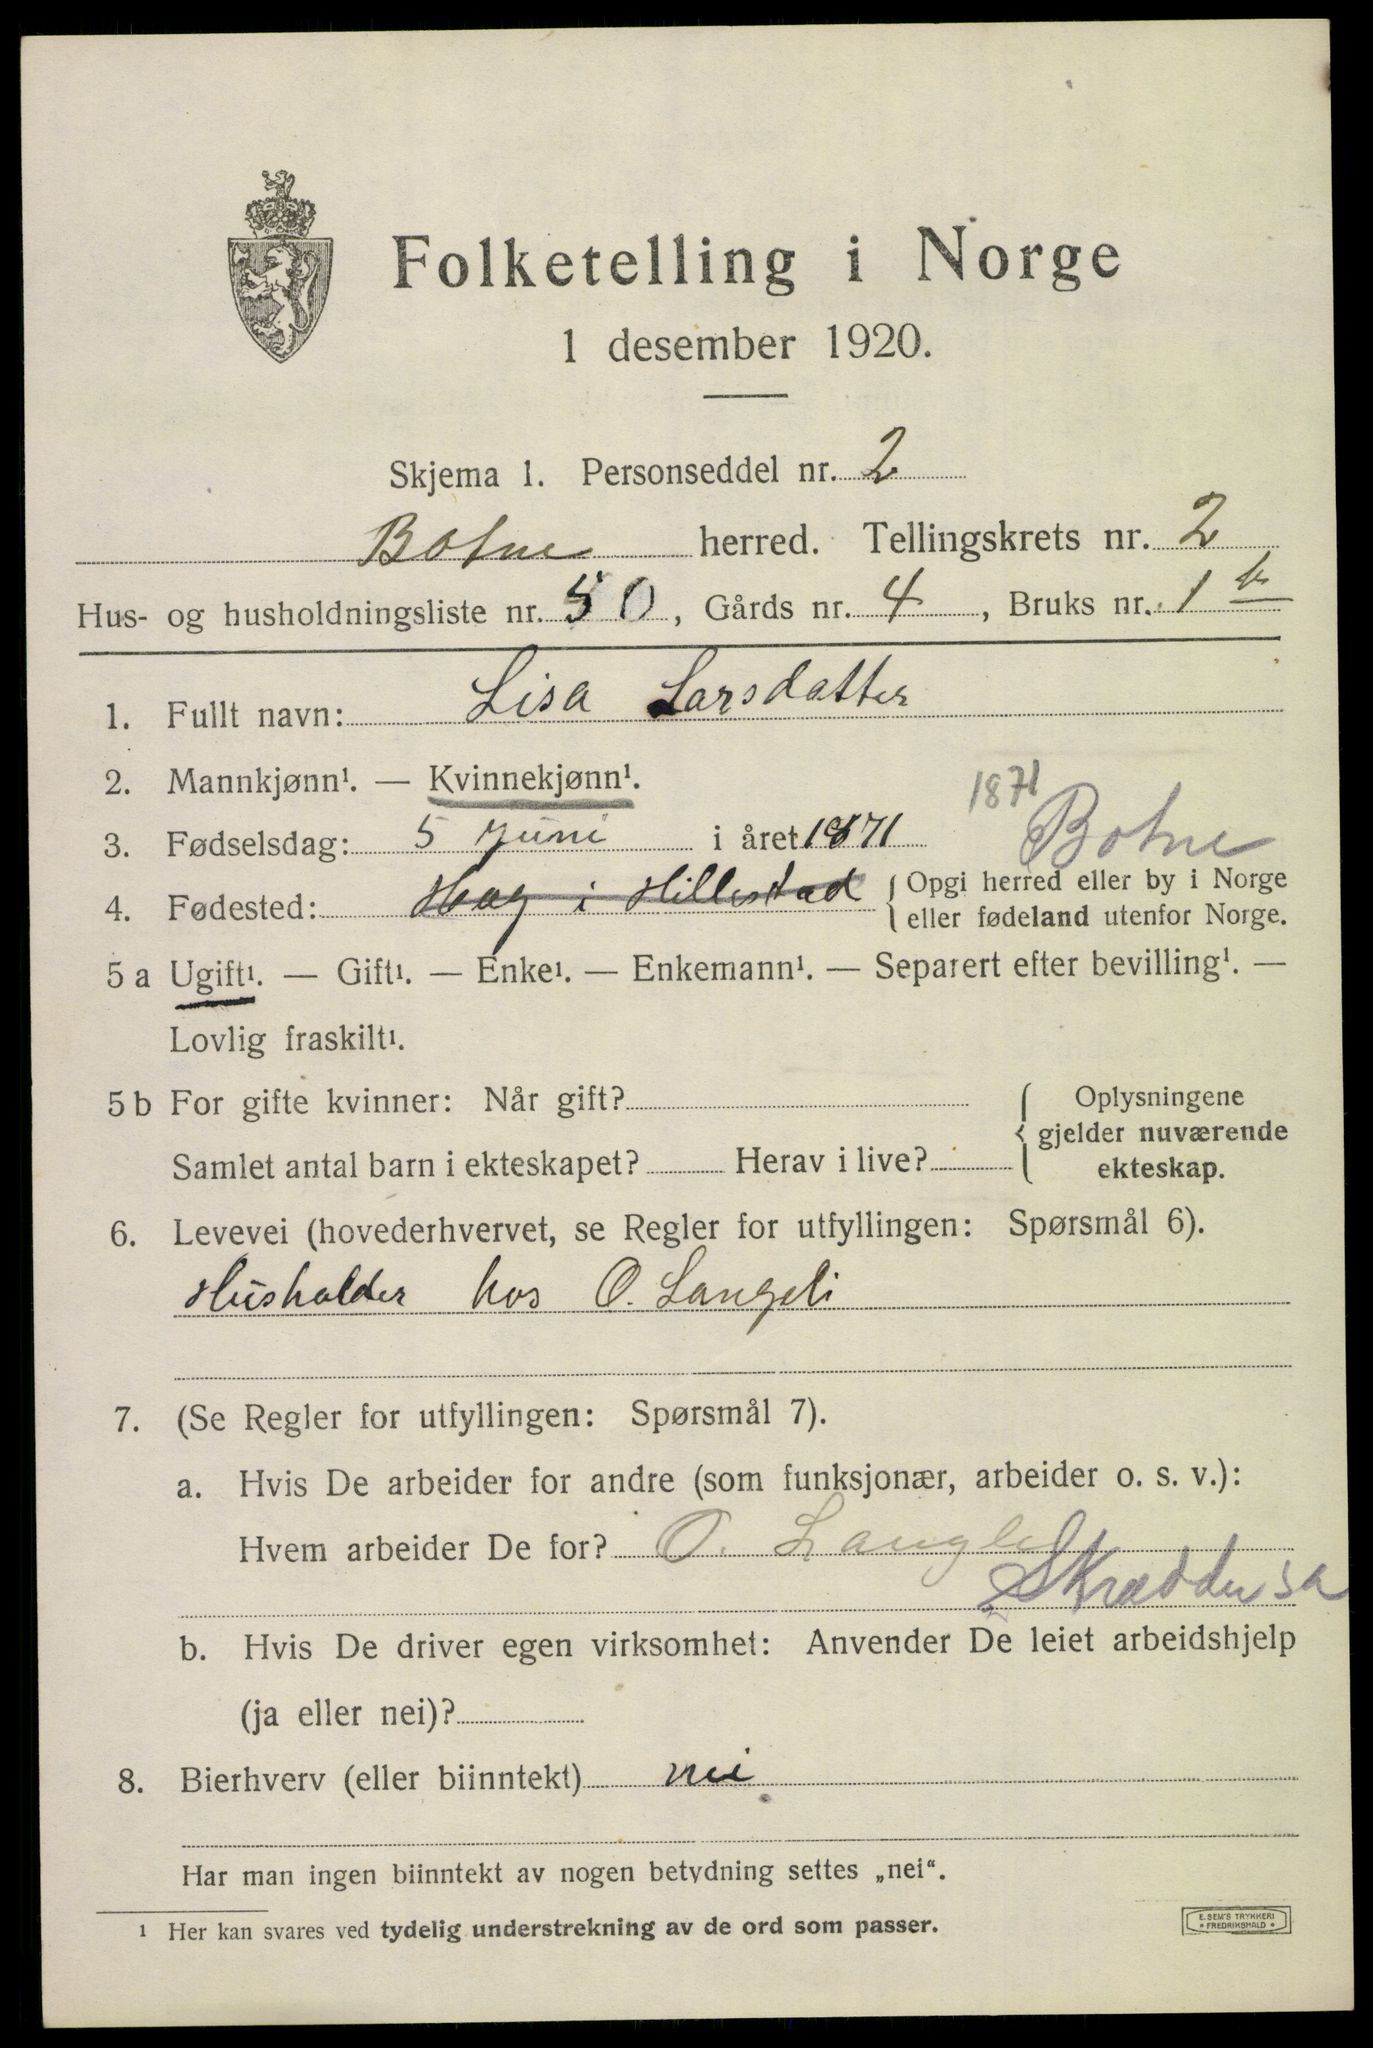 Folketelling i Norge
1 desember 1920.
Skjema 1. Personseddel nr. 2
Botne herred. Tellingskrets nr. 2
Hus- og husholdningsliste nr. 50, Gårds nr. 4, Bruks nr. 1
1. Fullt navn: Lisa Larsdatter
2. Mannkjønn¹. — Kvinnekjønn¹.
1871
3. Fødselsdag: 5 Juni i året 1871 Botne
4. Fødested: Hag i Hillestad { Opgi herred eller by i Norge
eller fødeland utenfor Norge.
5 a Ugift¹. — Gift¹. — Enke¹. — Enkemann¹. — Separert efter bevilling¹. —
Lovlig fraskilt¹.
5 b For gifte kvinner: Når gift? { Oplysningene
gjelder nuværende
ekteskap.
Samlet antal barn i ekteskapet? Herav i live?
6. Levevei (hovederhvervet, se Regler for utfyllingen: Spørsmål 6).
Husholder hos O. Langeli
7. (Se Regler for utfyllingen: Spørsmål 7).
a. Hvis De arbeider for andre (som funksjonær, arbeider o. s. v.):
Hvem arbeider De for? O.
Skrædder
b. Hvis De driver egen virksomhet: Anvender De leiet arbeidshjelp
(ja eller nei)?
8. Bierhverv (eller biinntekt) nei
Har man ingen biinntekt av nogen betydning settes „nei“.
¹ Her kan svares ved tydelig understrekning av de ord som passer.
E. SEM'S TRYKKERI
FREDRIKSHALD